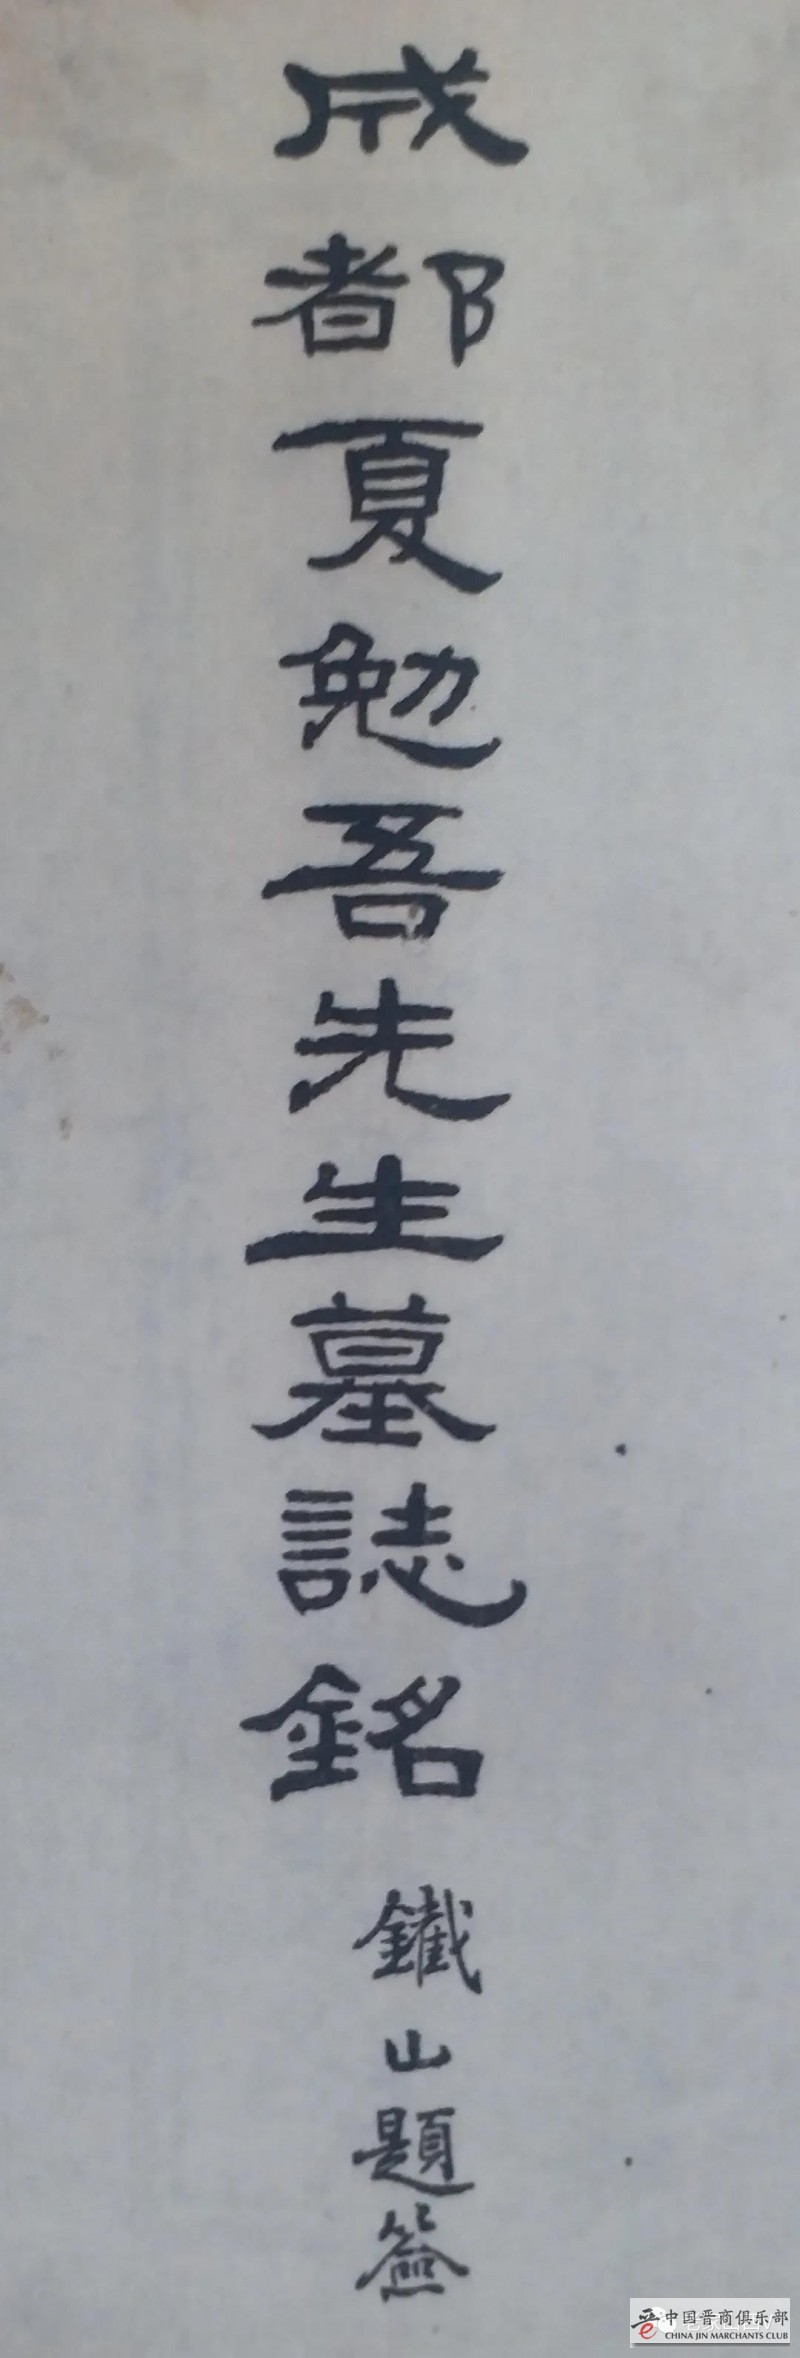 成都夏勉吾先生墓誌銘
鐵山題簽
中国晋商俱乐部
CHINA JIN MARCHANTS CLUB